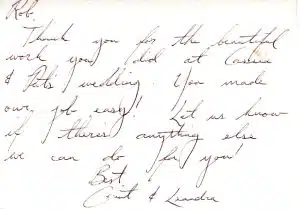 Rob,
Thank you for the beautiful
work you did at Cassie
& Pat's wedding. You made
our job easy! Let us know
if there's anything else
we can do for you!
Best,
& Leandra